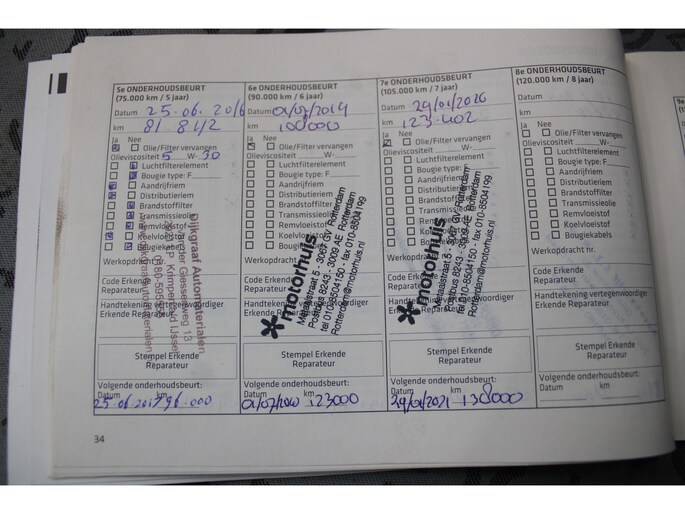 5e ONDERHOUDSBEURT
(75.000 km / 5 jaar)
Datum 25.06.2016
km 81 842
Ja Nee
Olie/Filter vervangen
Olieviscositeit 5 W- 30
Luchtfilterelement
Bougie type: F
Aandrijfriem
Distributieriem
Brandstoffilter
Transmissieolie
Remvloeistof
Koelvloeistof
Bougiekabels
Werkopdracht nr.
Code Erkende
Reparateur
Handtekening
Erkende Reparateur
Dijkgraaf Automaterialen
Stempel Erkende
Reparateur
Volgende onderhoudsbeurt:
Datum km
25.06.2017 96.000
6e ONDERHOUDSBEURT
(90.000 km / 6 jaar)
Datum 01/07/2019
km 100000
Ja Nee
Olie/Filter vervangen
Olieviscositeit W-
Luchtfilterelement
Bougie type: F
Aandrijfriem
Distributieriem
Brandstoffilter
Transmissieolie
Remvloeistof
Koelvloeistof
Bougiekabels
Werkopdracht nr.
Code Erkende
Reparateur
Handtekening vertegenwoordiger
Erkende Reparateur
motorhuis
Metaalstraat 5 - 3067 GV Rotterdam
Postbus 8243 - 3009 AE Rotterdam
tel 010-8504150 - fax 010-8504199
Rotterdam@motorhuis.nl
Stempel Erkende
Reparateur
Volgende onderhoudsbeurt:
Datum km
01/07/2020 123000
7e ONDERHOUDSBEURT
(105.000 km / 7 jaar)
Datum 29/01/2020
km 123-402
Ja Nee
Olie/Filter vervangen
Olieviscositeit W-
Luchtfilterelement
Bougie type: F
Aandrijfriem
Distributieriem
Brandstoffilter
Transmissieolie
Remvloeistof
Koelvloeistof
Bougiekabels
Werkopdracht nr.
Code Erkende
Reparateur
Handtekening vertegenwoordiger
Erkende Reparateur
motorhuis
Metaalstraat 5 - 3067 GV Rotterdam
Postbus 8243 - 3009 AE Rotterdam
tel 010-8504150 - fax 010-8504199
Rotterdam@motorhuis.nl
Stempel Erkende
Reparateur
Volgende onderhoudsbeurt:
Datum km
29/01/2021 138000
8e ONDERHOUDSBEURT
(120.000 km / 8 jaar)
Datum
km
Ja Nee
Olie/Filter vervangen
Olieviscositeit W-
Luchtfilterelement
Bougie type: F
Aandrijfriem
Distributieriem
Brandstoffilter
Transmissieolie
Remvloeistof
Koelvloeistof
Bougiekabels
Werkopdracht nr.
Code Erkende
Reparateur
Handtekening vertegenwoordiger
Erkende Reparateur
Stempel Erkende
Reparateur
Volgende onderhoudsbeurt:
Datum km
34